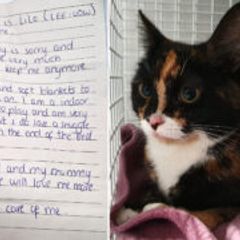 is LiLo (LEE-LOW)
me.
y is sorry and
e very much
keep me anymore.
and soft blankets to
on. I am a indoor
to play and am very
I do love a snuggle
the end of the bed
and my mummy
e will love me more
care of me